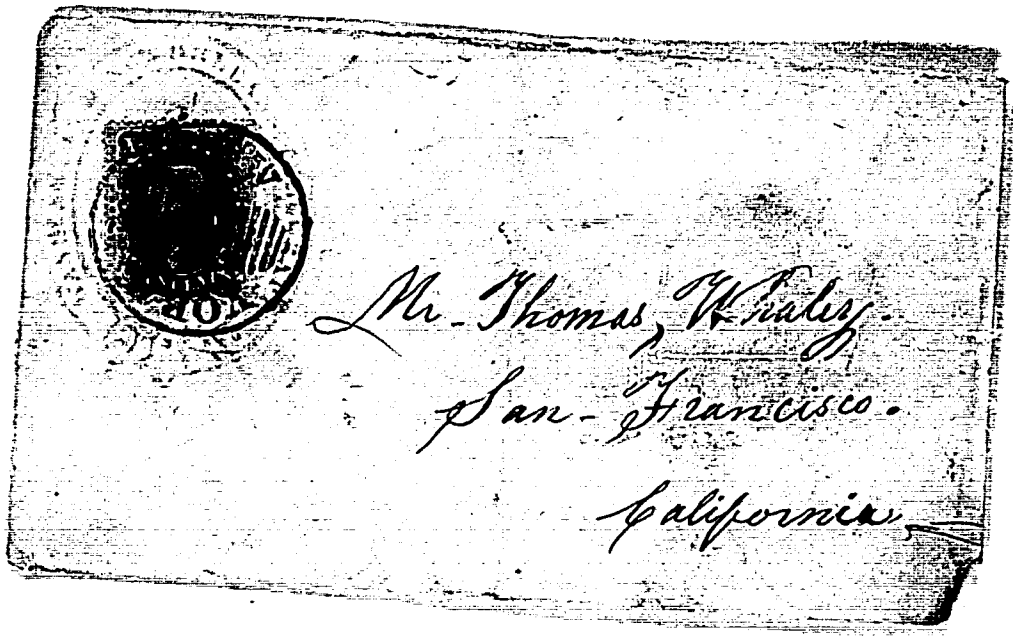 Mr - Thomas, Whaley.
San - Francisco.
California